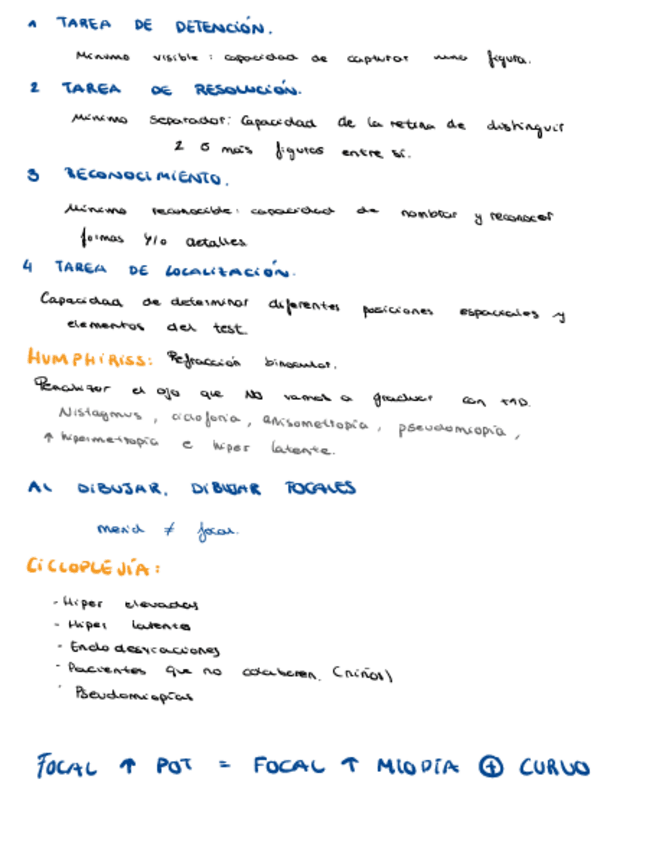 1 TAREA DE DETENCIÓN.
Mínimo visible: capacidad de capturar una figura.
2 TAREA DE RESOLUCIÓN.
Mínimo separador: Capacidad de la retina de distinguir
2 o más figuras entre sí.
3 RECONOCIMIENTO.
Mínimo reconocible: capacidad de nombrar y reconocer
formas y/o detalles
4 TAREA DE LOCALIZACIÓN.
Capacidad de determinar diferentes posiciones espaciales y
elementos del test.
HUMPHIRISS: Refracción binocular.
Penalizar el ojo que NO vamos a graduar con +1D.
Nistagmus, cicloforia, anisometropía, pseudomiopía,
↑ hipermetropía e hiper latente.
AL DIBUJAR, DIBUJAR FOCALES
merid ≠ focal.
CICLOPLEJÍA:
- Hiper elevadas
- Hiper latente
- Endodesviaciones
- Pacientes que no colaboren. (niños)
Pseudomiopías
FOCAL ↑ POT = FOCAL ↑ MIOPÍA ⊕ CURVO